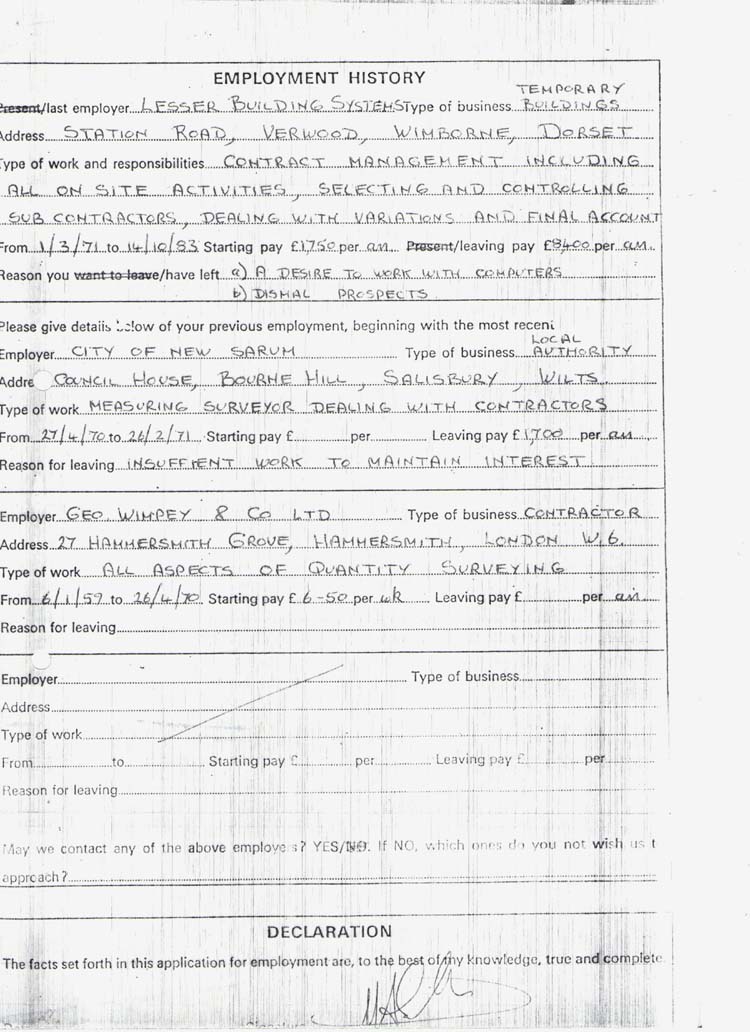 EMPLOYMENT HISTORY
TEMPORARY
Present/last employer LESSER BUILDING SYSTEMS Type of business BUILDINGS
Address STATION ROAD, VERWOOD, WIMBORNE, DORSET
Type of work and responsibilities CONTRACT MANAGEMENT INCLUDING
ALL ON SITE ACTIVITIES, SELECTING AND CONTROLLING
SUB CONTRACTORS, DEALING WITH VARIATIONS AND FINAL ACCOUNT
From 1/3/71 to 14/10/83 Starting pay £1,750 per an. Present/leaving pay £8400 per an.
Reason you want to leave/have left a) A DESIRE TO WORK WITH COMPUTERS
b) DISMAL PROSPECTS
Please give details below of your previous employment, beginning with the most recent
LOCAL
Employer CITY OF NEW SARUM Type of business AUTHORITY
Addre COUNCIL HOUSE, BOURNE HILL, SALISBURY, WILTS
Type of work MEASURING SURVEYOR DEALING WITH CONTRACTORS
From 27/4/70 to 26/2/71 Starting pay £ per Leaving pay £1,700 per an
Reason for leaving INSUFFIENT WORK TO MAINTAIN INTEREST
Employer GEO. WIMPEY & CO LTD Type of business CONTRACTOR
Address 27 HAMMERSMITH GROVE, HAMMERSMITH, LONDON W.6.
Type of work ALL ASPECTS OF QUANTITY SURVEYING
From 6/1/59 to 26/4/70 Starting pay £ 6-50 per wk Leaving pay £ per an.
Reason for leaving
Employer Type of business
Address
Type of work
From to Starting pay £ per Leaving pay £ per
Reason for leaving
May we contact any of the above employe s? YES/NO. If NO, which ones do you not wish us t
approach?
DECLARATION
The facts set forth in this application for employment are, to the best of my knowledge, true and complete